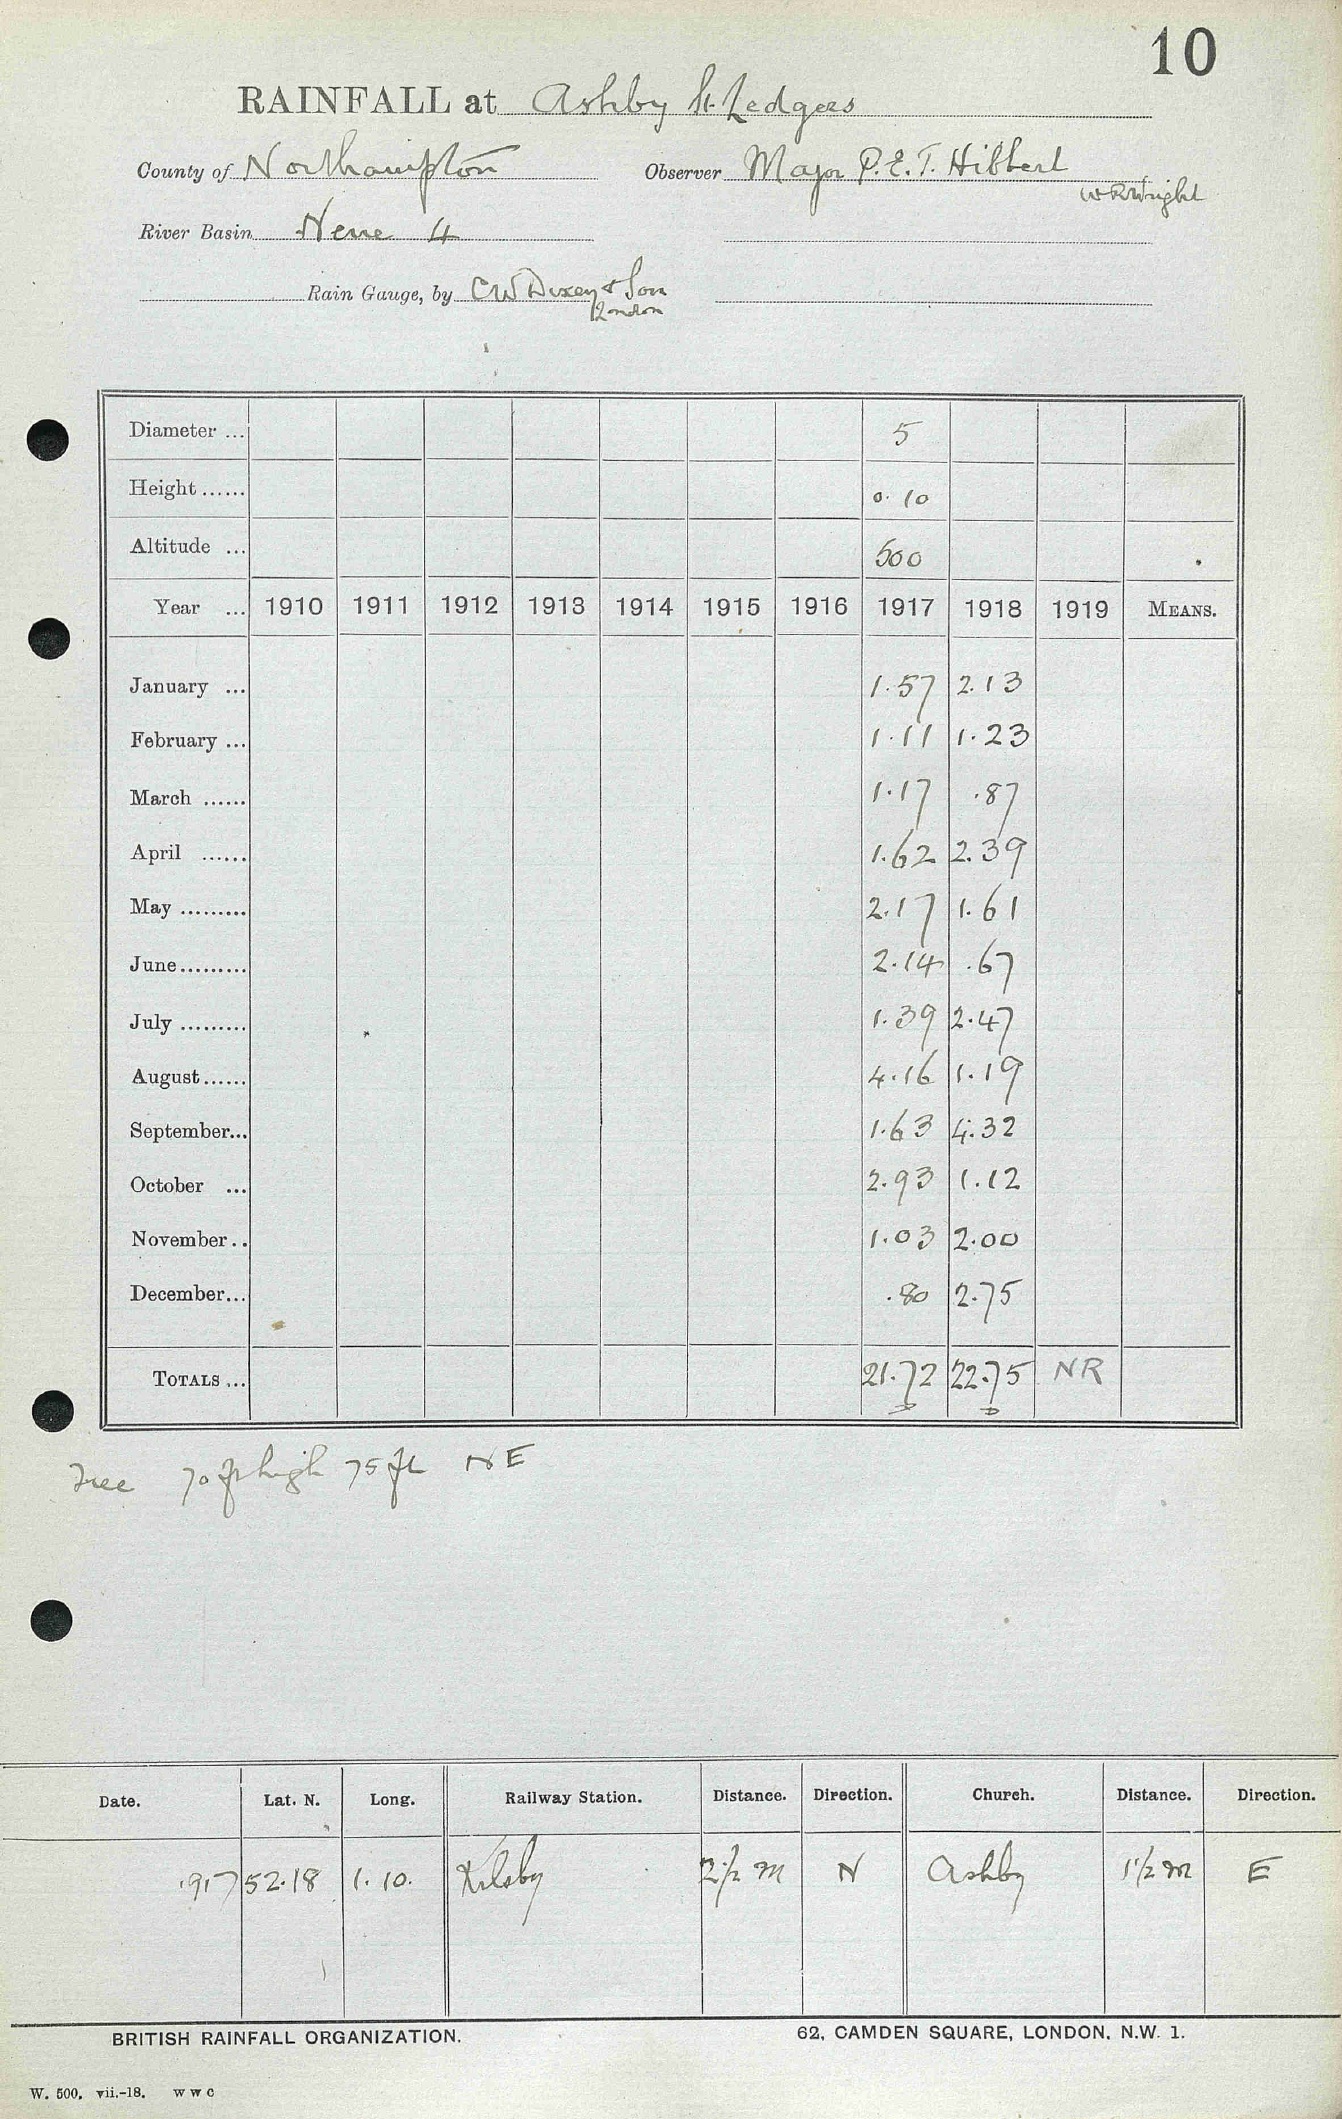 10
RAINFALL at Ashby St. Ledgers
County of Northampton Observer Major P.E.T. Hibbert
W R Wright
River Basin Nene 4
Rain Gauge, by C W Dixey & Son
London
Diameter ... 5
Height ...... 0. 10
Altitude ... 500
Year ... 1910 1911 1912 1913 1914 1915 1916 1917 1918 1919 MEANS.
January ... 1.57 2.13
February ... 1.11 1.23
March ...... 1.17 .87
April ...... 1.62 2.39
May ......... 2.17 1.61
June ......... 2.14 .67
July ......... 1.39 2.47
August ...... 4.16 1.19
September... 1.63 4.32
October ... 2.93 1.12
November .. 1.03 2.00
December... .80 2.75
TOTALS ... 21.72 22.75 NR
Tree 70 ft high 75 ft NE
Date. Lat. N. Long. Railway Station. Distance. Direction. Church. Distance. Direction.
1917 52.18 1. 10. Kilsby 2 1/2 m N Ashby 1 1/2 m E
BRITISH RAINFALL ORGANIZATION. 62, CAMDEN SQUARE, LONDON, N.W. 1.
W. 500. vii.-18. W W C